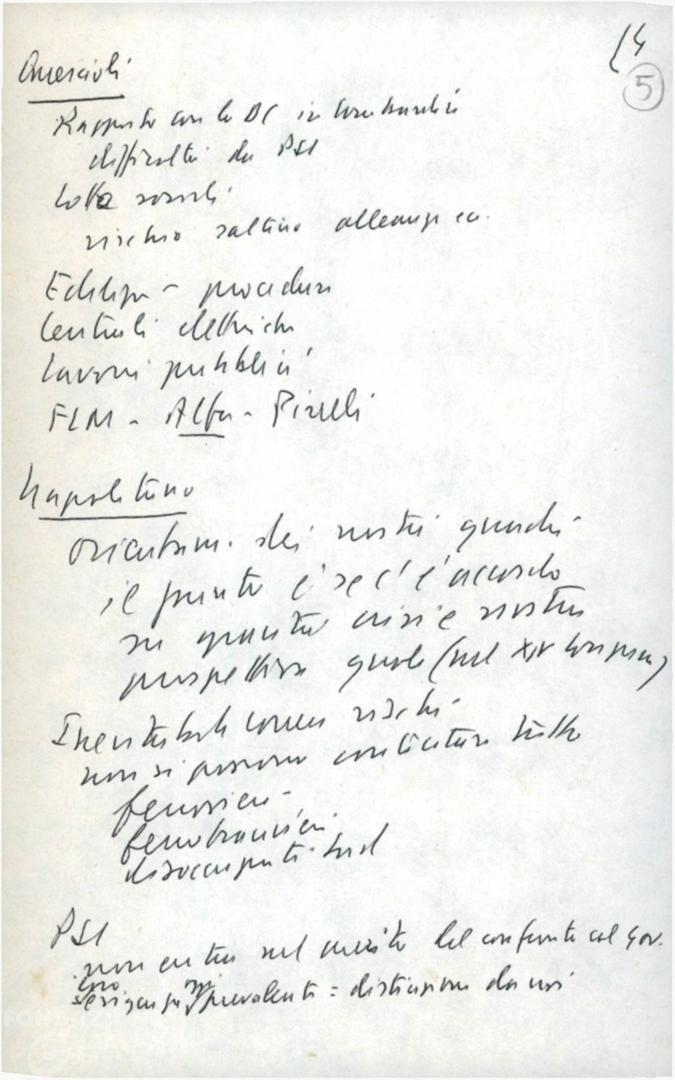 14
5
Quercioli
Rapporto con la DC in Lombardia
difficoltà da PSI
Lotta
rischio saltino alleanze ecc.
Edilizia - procedure
Centrali elettriche
Lavori pubblici
FLM - Alfa - Pirelli
Napolitano
Orientam. dei nostri quadri
il punto è se c'è accordo
su questa crisi e nostra
prospettiva quale (nel XIV Congresso)
Inevitabile correre rischi
non si possono contentare tutti
ferrovieri
ferrotranvieri
disoccupati sud
PSI
non entra nel merito del confronto col gov.
loro esigenza prevalente = distinzione da noi